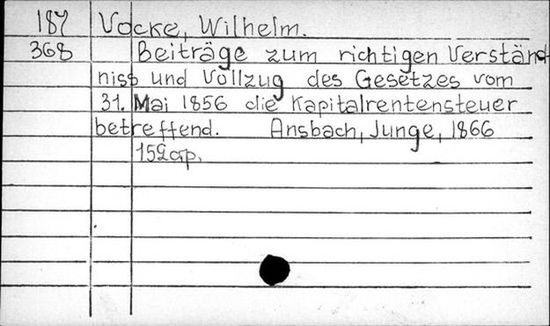 187 Vocke, Wilhelm.
368 Beiträge zum richtigen Verständ-
niss und Vollzug des Gesetzes vom
31. Mai 1856 die Kapitalrentensteuer
betreffend. Ansbach, Junge, 1866
152 p.